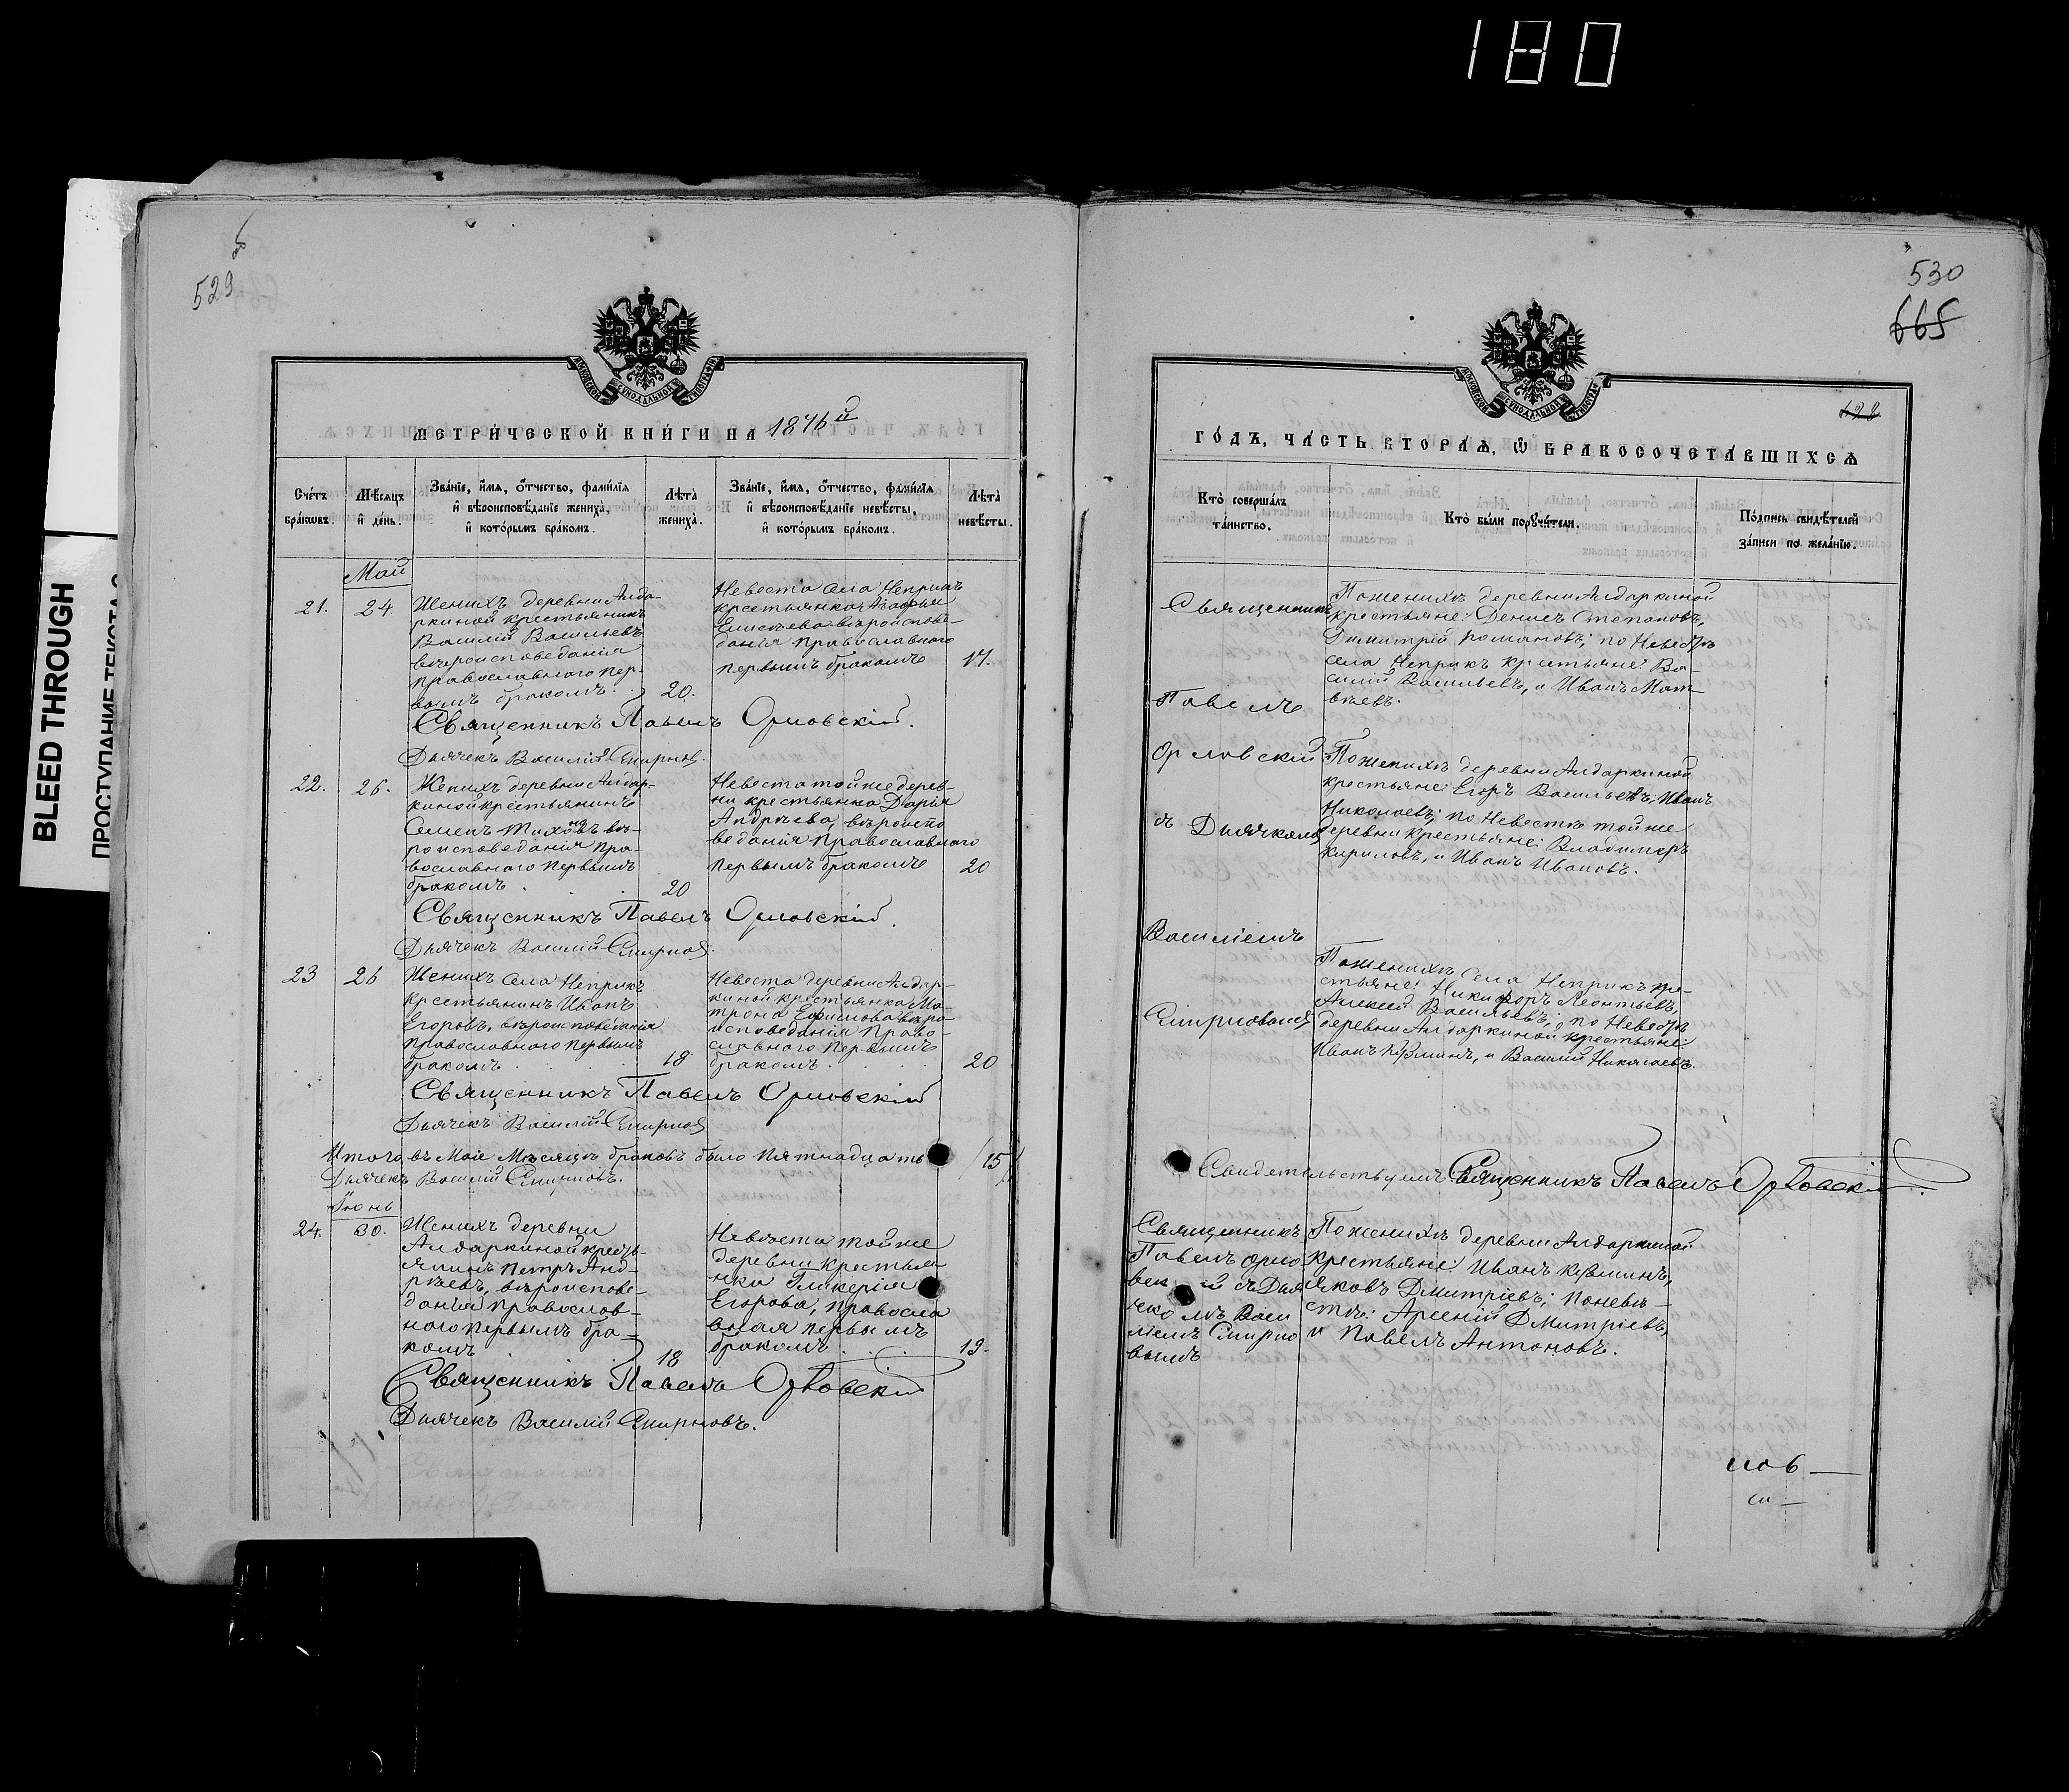 180
BLEED THROUGH
ПРОСТУПАНИЕ ТЕКСТА С
529
МЕТРИ́ЧЕСКОЙ КНИ́ГИ НА 1846й
Сче́тъ бра́кѡвъ.
Мѣ́сяцъ и҆ де́нь.
Зва́нїе, и҆́мѧ, ѻ҆́тчество, фами́лїѧ
и҆ вѣроисповѣ́данїе жениха̀,
и҆ кото́рымъ бра́комъ.
Лѣ́та жениха̀.
Зва́нїе, и҆́мѧ, ѻ҆́тчество, фами́лїѧ
и҆ вѣроисповѣ́данїе невѣ́сты,
и҆ кото́рымъ бра́комъ.
Лѣ́та невѣ́сты.
Май
21.
24.
Женихъ деревни Алда-
ркиной крестьянинъ
Василій Васильевъ
вѣроисповеданія
православного пер-
вымъ бракомъ.
20.
Невеста села Неприкъ
крестьянка Агафья
Елисѣева вѣроиспове-
данія православного
первымъ бракомъ
17.
Священникъ Павелъ Орловскій.
Дьячекъ Василій Смирнов.
22.
26.
Женихъ деревни Алдар-
киной крестьянинъ
Семен Тихоновъ вѣ-
роисповеданія пра-
вославного первымъ
бракомъ.
20
Невеста той же дерев-
ни крестьянка Дарія
Андрѣева, вѣроиспо
веданія православного
первымъ бракомъ
20
Священникъ Павелъ Орловскій.
Дьячекъ Василій Смирнов.
23
26
Женихъ села Неприкъ
крестьянинъ Иванъ
Егоровъ, вѣроисповеданія
православного первымъ
бракомъ
18
Невеста деревни Алдар-
киной крестьянка Ма-
трона Ефимова вѣро-
исповеданія право-
славного первымъ
бракомъ.
20
Священникъ Павелъ Орловскій
Дьячекъ Василій Смирнов
Итого въ Маіе Мѣсяцѣ браковъ было пятнадцать /15/
Дьячекъ Василій Смирновъ.
Іюнь
24.
30.
Женихъ деревни
Алдаркиной кресть-
янинъ Петръ Анд-
рѣевъ, вѣроиспове-
данія православ-
ного первымъ бра-
комъ
18
Невѣста той же
деревни крестья
нка Гликерія
Егорова, правосла
вная первымъ
бракомъ.
19.
Священникъ Павелъ Орловскій
Дьячекъ Василій Смирновъ.
530
665
628
ГО́ДЪ, ЧА́СТЬ ВТОРА́Ѧ, Ѽ БРАКОСОЧЕТА́ВШИХСѦ
Кто̀ соверша́лъ та́инство.
Кто̀ бы́ли порꙋчи́тели.
По́дпись свидѣ́телей за́писи по жела́нїю.
Священникъ
Павелъ
Орловскій
съ Дьячкомъ
Василіемъ
Смирновымъ
По женихѣ деревни Алдаркиной
крестьяне: Денис Степановъ,
Димитрій Романовъ; по Невестѣ
села Неприкъ крестьяне: Ва-
силій Васильевъ, и Иванъ Мат-
вѣевъ.
По женихѣ деревни Алдаркиной
крестьяне: Егоръ Васильевъ, Иванъ
Николаевъ; по Невестѣ той же
деревни крестьяне: Владимеръ
Кириловъ, и Иванъ Ивановъ.
По женихѣ села Неприкъ кре-
стьяне: Никифоръ Леонтьевъ,
Алексей Васильевъ; по Невестѣ
деревни Алдаркиной крестьяне:
Иванъ Кузминъ, и Василій Николаевъ.
Свидетельствуемъ Священникъ Павелъ Орловскій.
Священникъ
Павелъ Орло
вск й съ Дья
чко мъ Васи
ліемъ Смирно
вымъ
По женихѣ деревни Алдаркиной
крестьяне: Иванъ Кузминъ,
Яковъ Дмитріевъ; по невѣ-
стѣ: Арсеній Дмитріевъ,
и Павелъ Антоновъ.